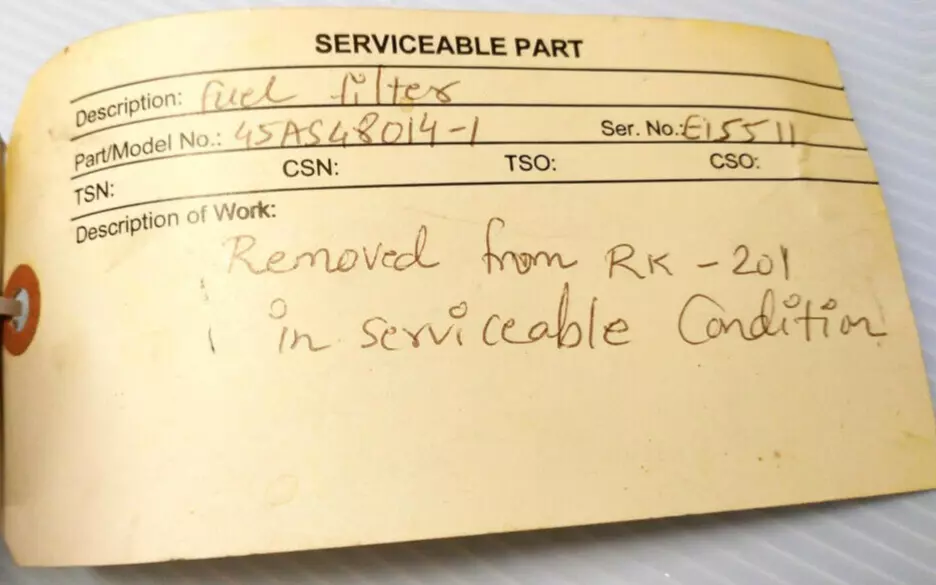 SERVICEABLE PART
Description: fuel filter
Part/Model No.: 45AS48014-1 Ser. No.: E15511
TSN: CSN: TSO: CSO:
Description of Work:
Removed from RK - 201
in serviceable Condition